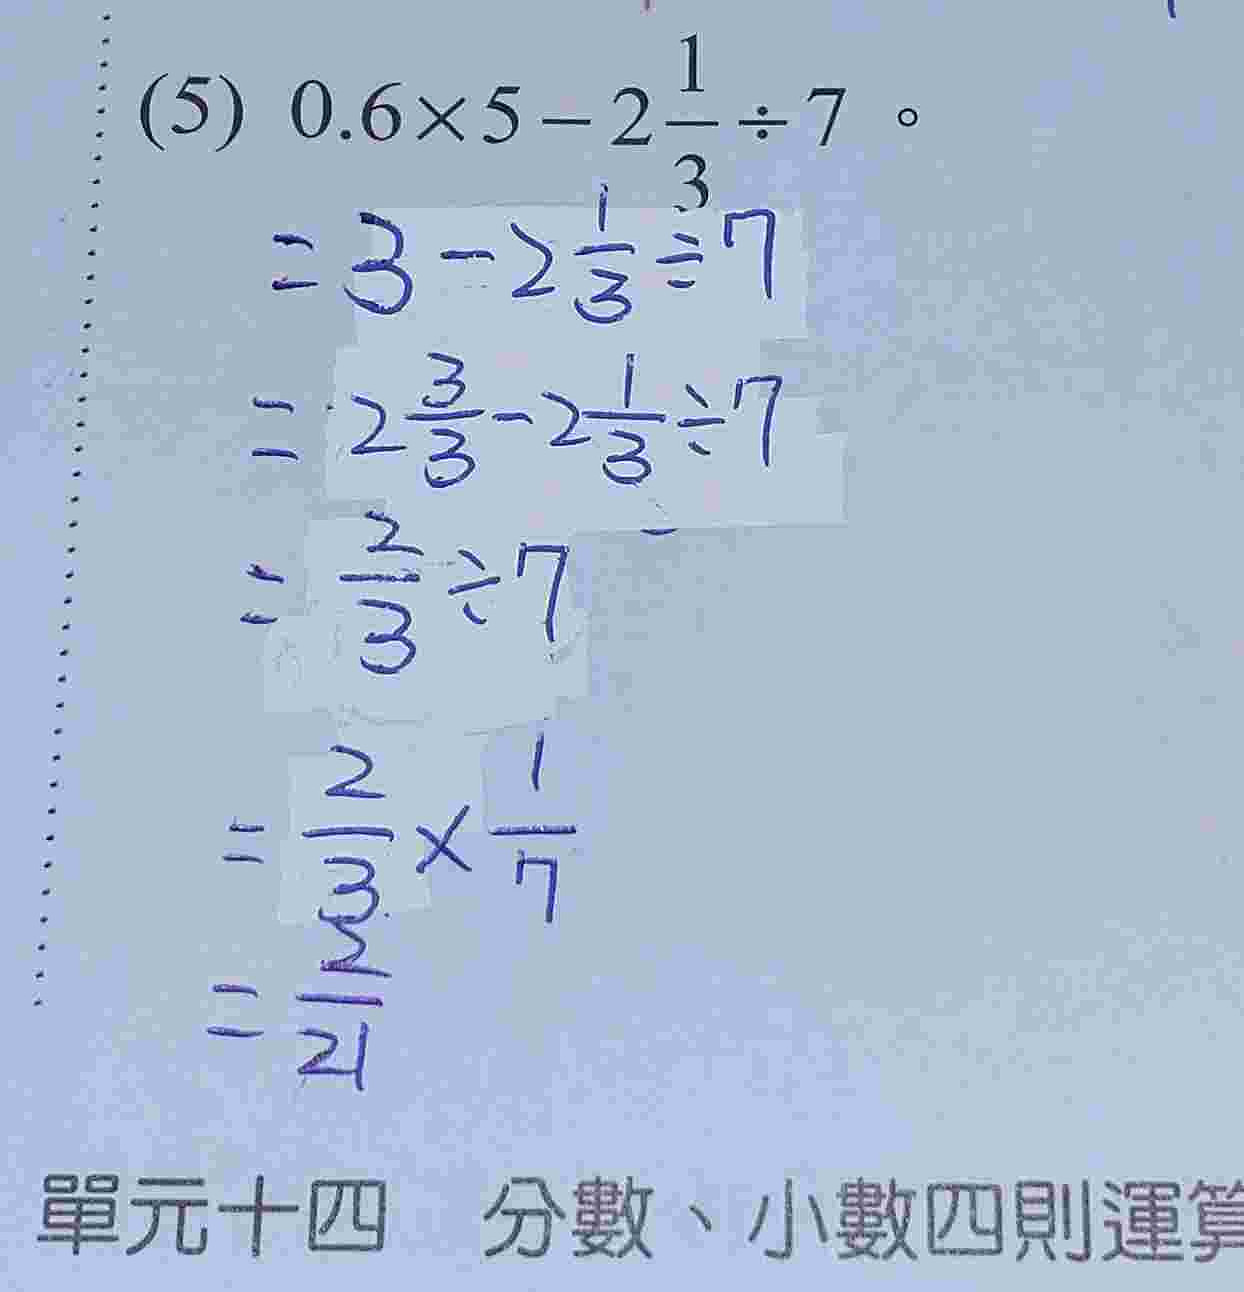 (5) 0.6×5－2 1/3÷7。
= 3 - 2 1/3 ÷ 7
= 2 3/3 - 2 1/3 ÷ 7
= 2/3 ÷ 7
= 2/3 × 1/7
= 2/21
單元十四　分數、小數四則運算